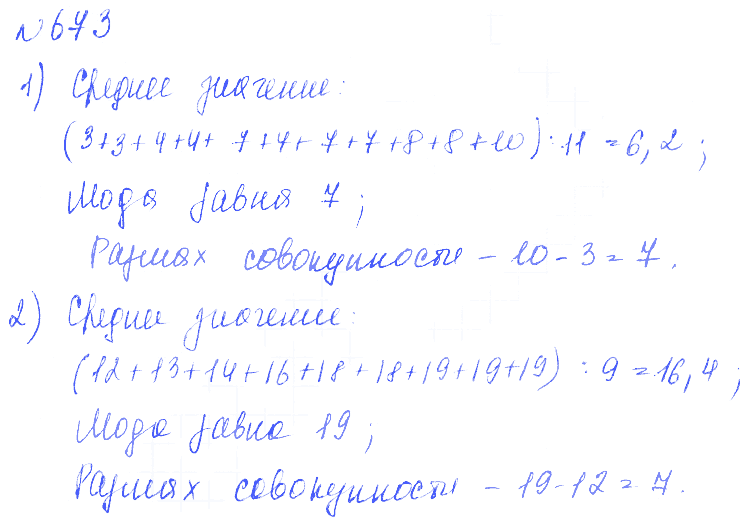 №673
1) Среднее значение:
(3+3+4+4+7+7+7+7+8+8+10):11=6,2;
Мода равна 7;
Размах совокупности – 10-3=7.
2) Среднее значение:
(12+13+14+16+18+18+19+19+19):9=16,4;
Мода равна 19;
Размах совокупности – 19-12=7.